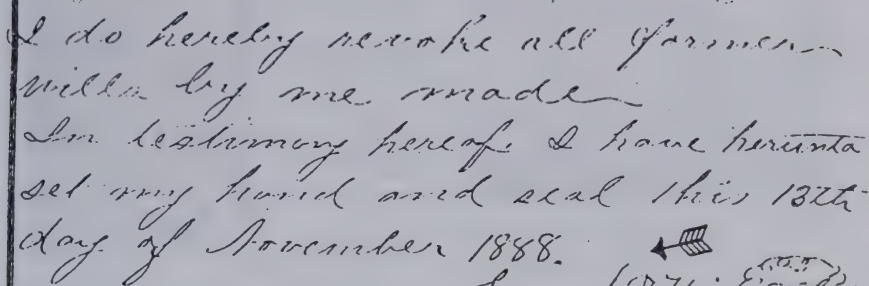 I do hereby revoke all former
wills by me made
In testimony hereof I have herunto
set my hand and seal this 13th
day of November 1888.